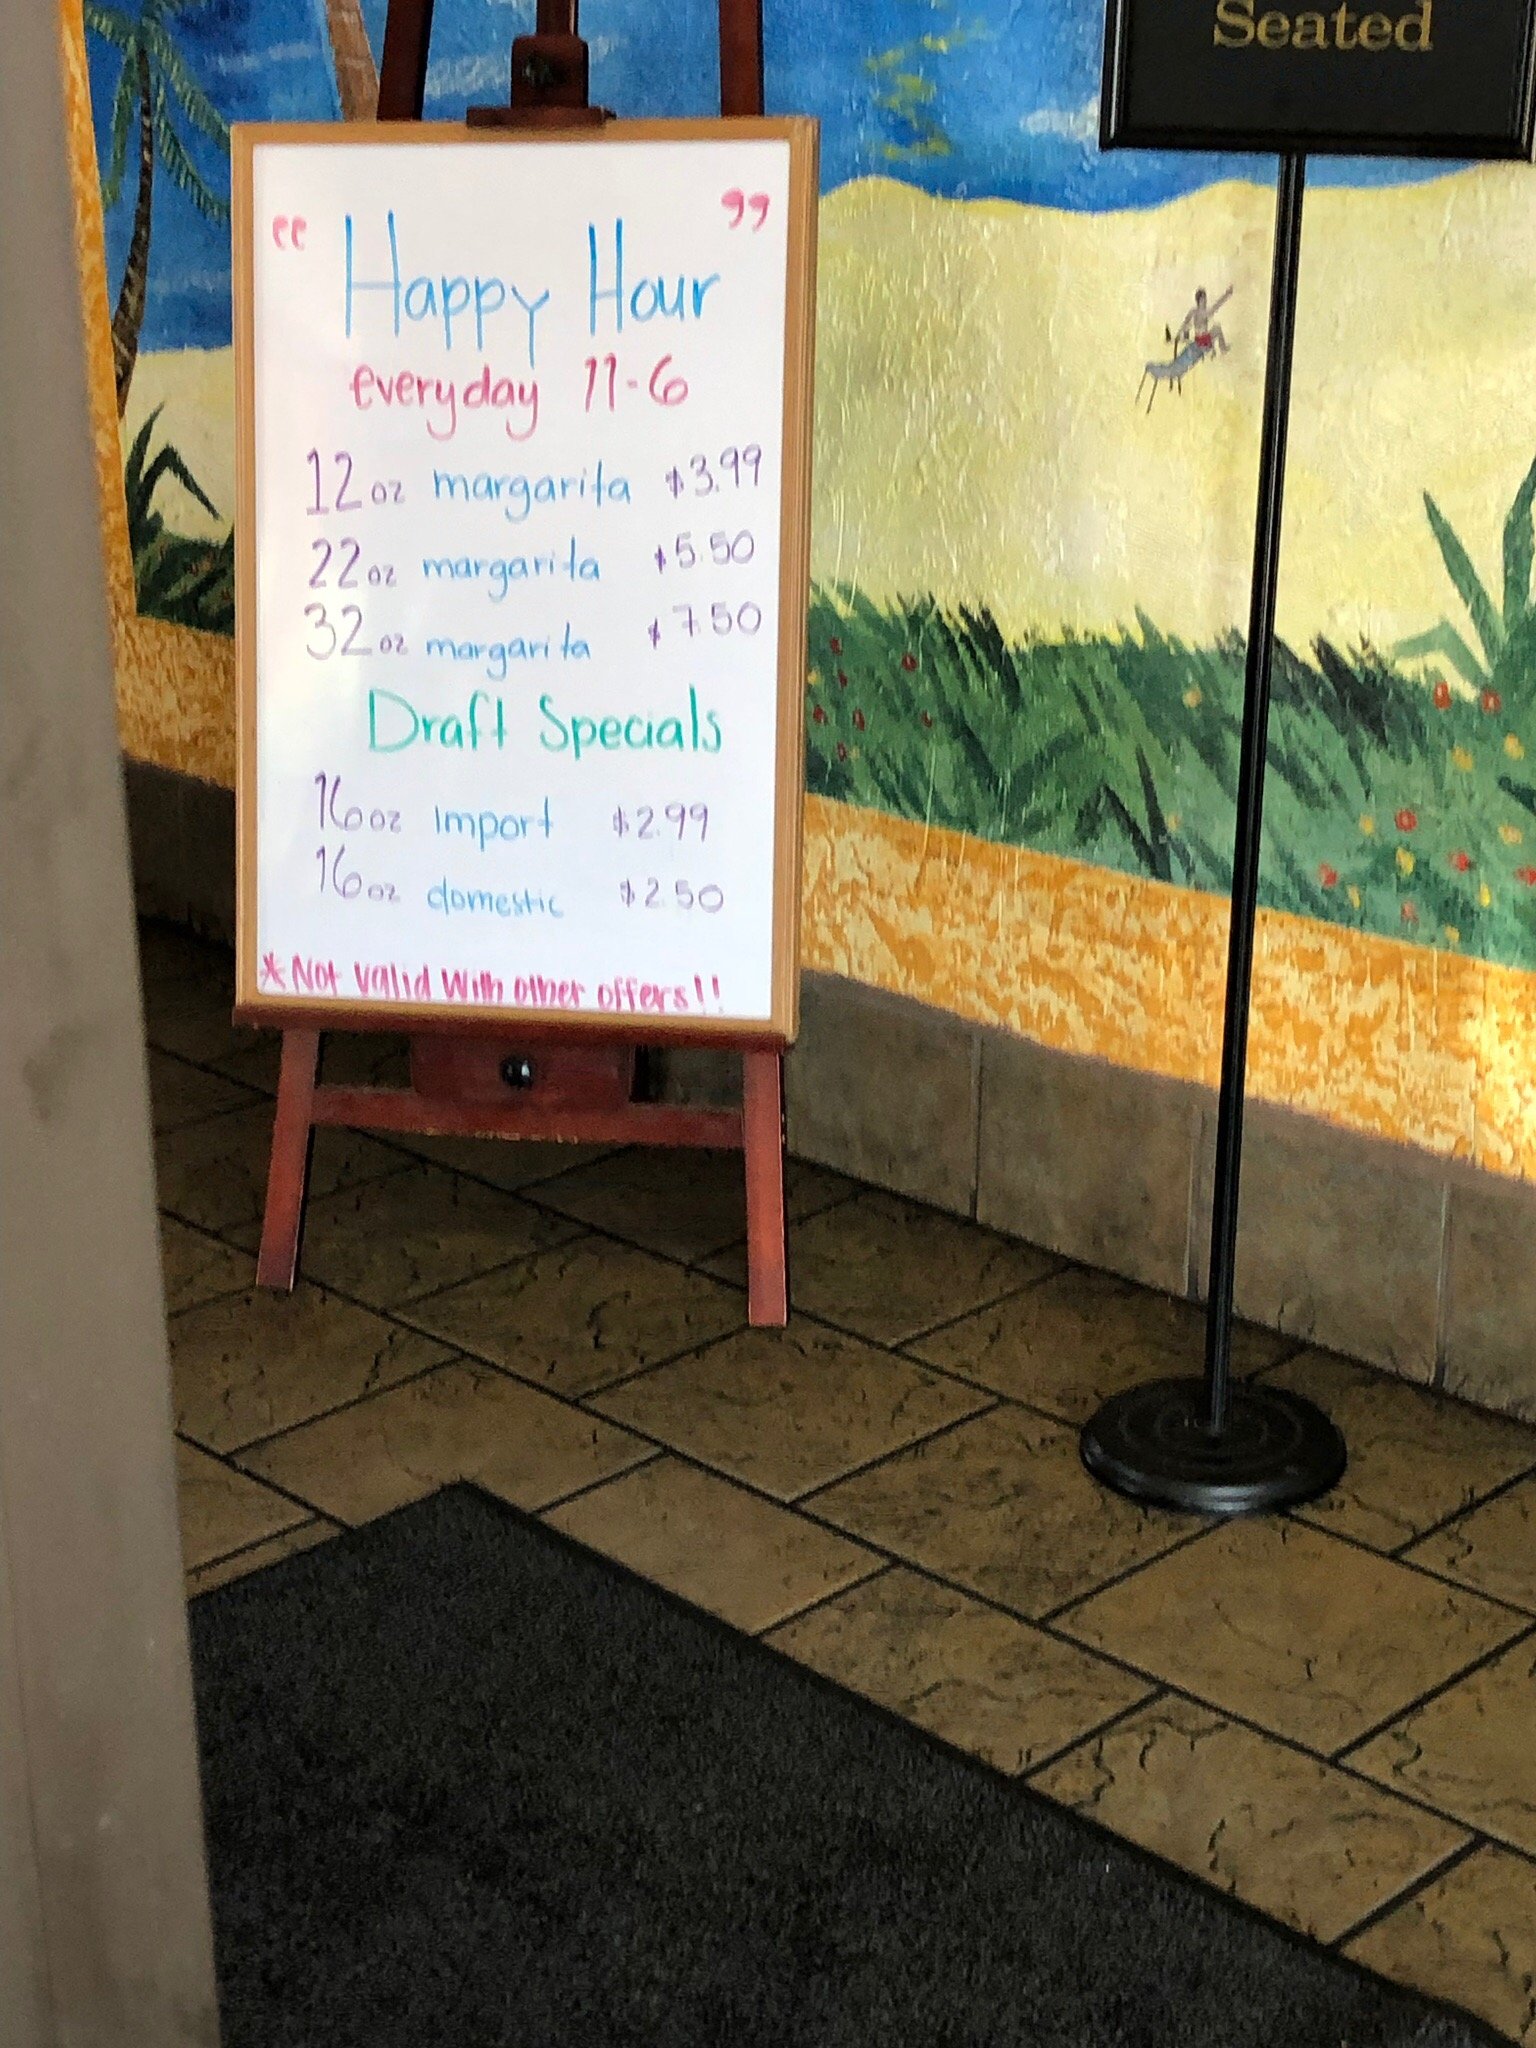 Seated
" Happy Hour "
everyday 11-6
12oz margarita $3.99
22oz margarita $5.50
32oz margarita $7.50
Draft Specials
16oz import $2.99
16oz domestic $2.50
*Not valid with other offers!!